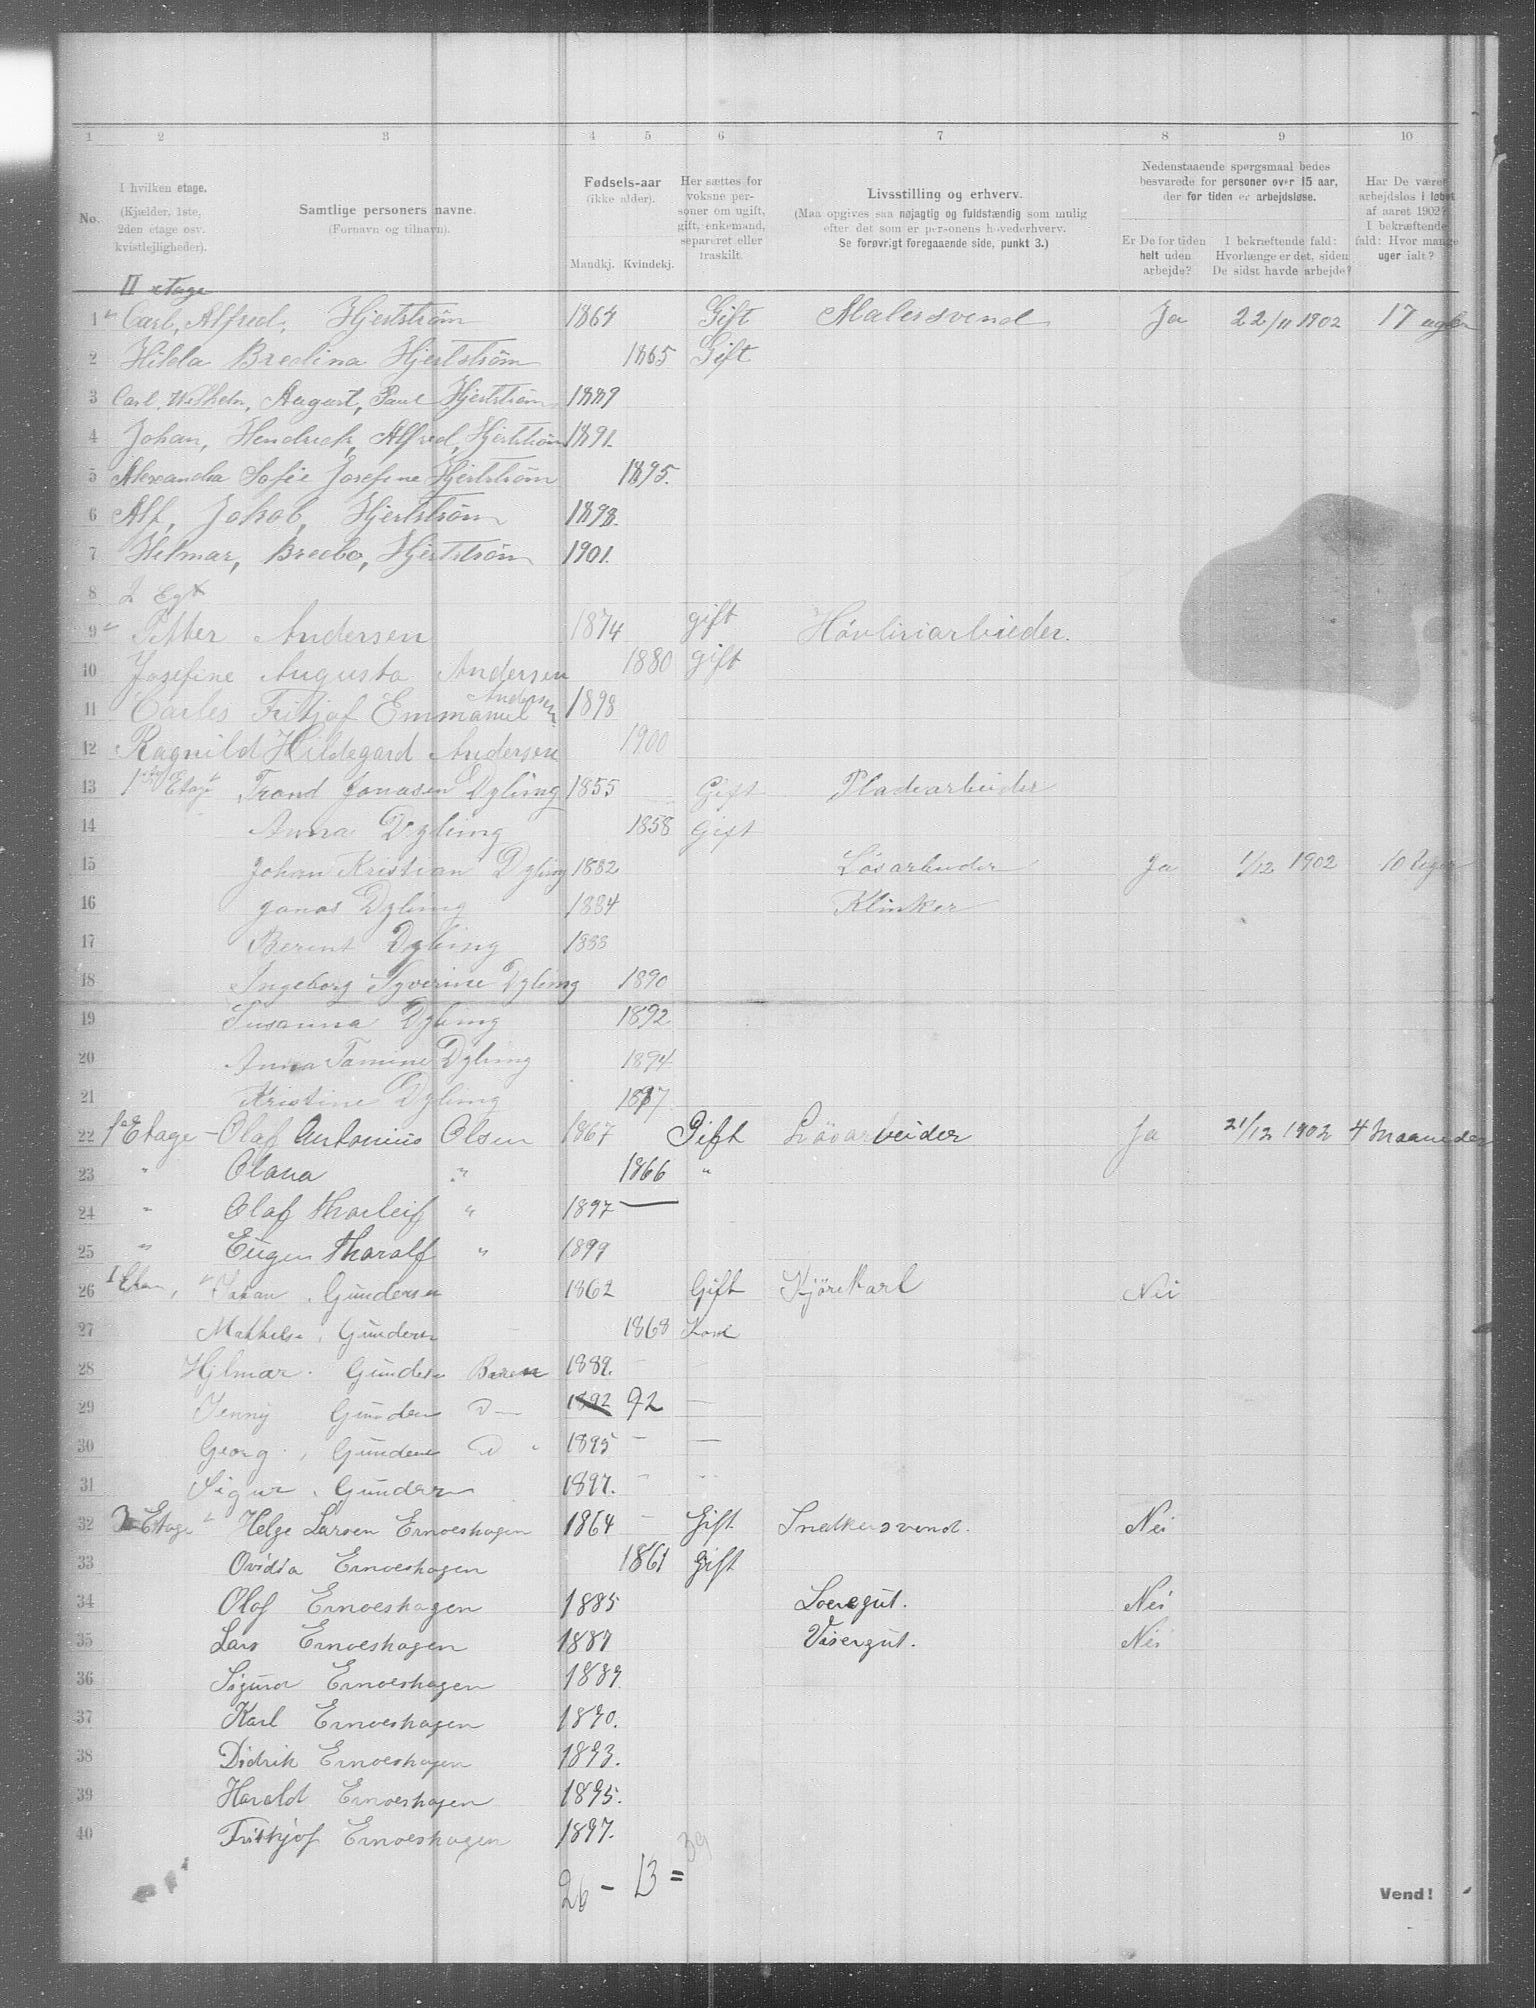 1 2 3 4 5 6 7 8 9 10
No.
I hvilken etage.
(Kjælder, 1ste, 2den etage osv. kvistlejligheder).
Samtlige personers navne.
(Fornavn og tilnavn).
Fødsels-aar
(ikke alder).
Mandkj. Kvindekj.
Her sættes for voksne personer om ugift, gift, enkemand, separeret eller fraskilt.
Livsstilling og erhverv.
(Maa opgives saa nøjagtig og fuldstændig som mulig efter det som er personens hovederhverv.
Se forøvrigt foregaaende side, punkt 3.)
Nedenstaaende spørgsmaal bedes besvarede for personer over 15 aar, der for tiden er arbejdsløse.
Er De for tiden helt uden arbejde?
I bekræftende fald: Hvorlænge er det, siden De sidst havde arbejde?
Har De været arbejdsløs i løbet af aaret 1902? I bekræftende fald: Hvor mange uger ialt?
II etage
1 Carl, Alfred, Hjertstrøm 1864 Gift Malersvend Ja 22/11 1902 17 uger
2 Hilda Bredina Hjertstrøm 1865 Gift
3 Carl, Wilhelm, August, Paul Hjertstrøm 1889
4 Johan, Hendrick, Alfred, Hjertstrøm 1891.
5 Alexandra Sofie Josefine Hjertstrøm 1895.
6 Alf, Jakob, Hjertstrøm 1898.
7 Helmar, Bredbo, Hjertstrøm 1901.
8 2 Egt
9 Petter Andersen 1874 gift Hövliriarbeider.
10 Josefine Augusta Andersen 1880 gift
11 Carles Fritjof Emmanuel Andersen 1898
12 Ragnild Hildegard Andersen 1900
13 1ste Etage Trond Jonasen Dybing 1855 Gift Pladsarbeider
14 Anna Dybing 1858 Gift
15 Johan Kristian Dybing 1882 Løsarbeider Ja 1/12 1902 10 Uger
16 Jonas Dybing 1884 Klinker
17 Berent Dybing 1888
18 Ingeborg Syverine Dybing 1890
19 Susanna Dybing 1892
20 Anna Tomine Dybing 1894
21 Kristine Dybing 1897
22 1e Etage - Olaf Antonius Olsen 1867 Gift Løsarbeider Ja 21/12 1902 4 Maaneder
23 " Olava " 1866 "
24 " Olaf Thorleif " 1897 —
25 " Eugen Tharalf " 1899
26 1 Etag, Johan . Gundersen 1862 Gift Kjörekarl Nei
27 Mathilde . Gundersen 1868 Kone
28 Hjlmar . Gundersen Baren 1889.
29 Jenny Gundersen D— 1892 92 —
30 Georg . Gundersen D " 1895 — —
31 Sigur . Gundersen 1897. " "
32 2 Etage Helge Larsen Ernoeshagen 1864 — Gift Snedkersvend. Nei
33 Ovidia Ernoeshagen 1861 Gift
34 Olaf Ernoeshagen 1885 Loeregut. Nei
35 Lars Ernoeshagen 1887 Visergut. Nei
36 Sigurd Ernoeshagen 1889.
37 Karl Ernoeshagen 1890.
38 Didrik Ernoeshagen 1893.
39 Harald Ernoeshagen 1895.
40 Frithjof Ernoeshagen 1897.
26 - 13 = 39
Vend!